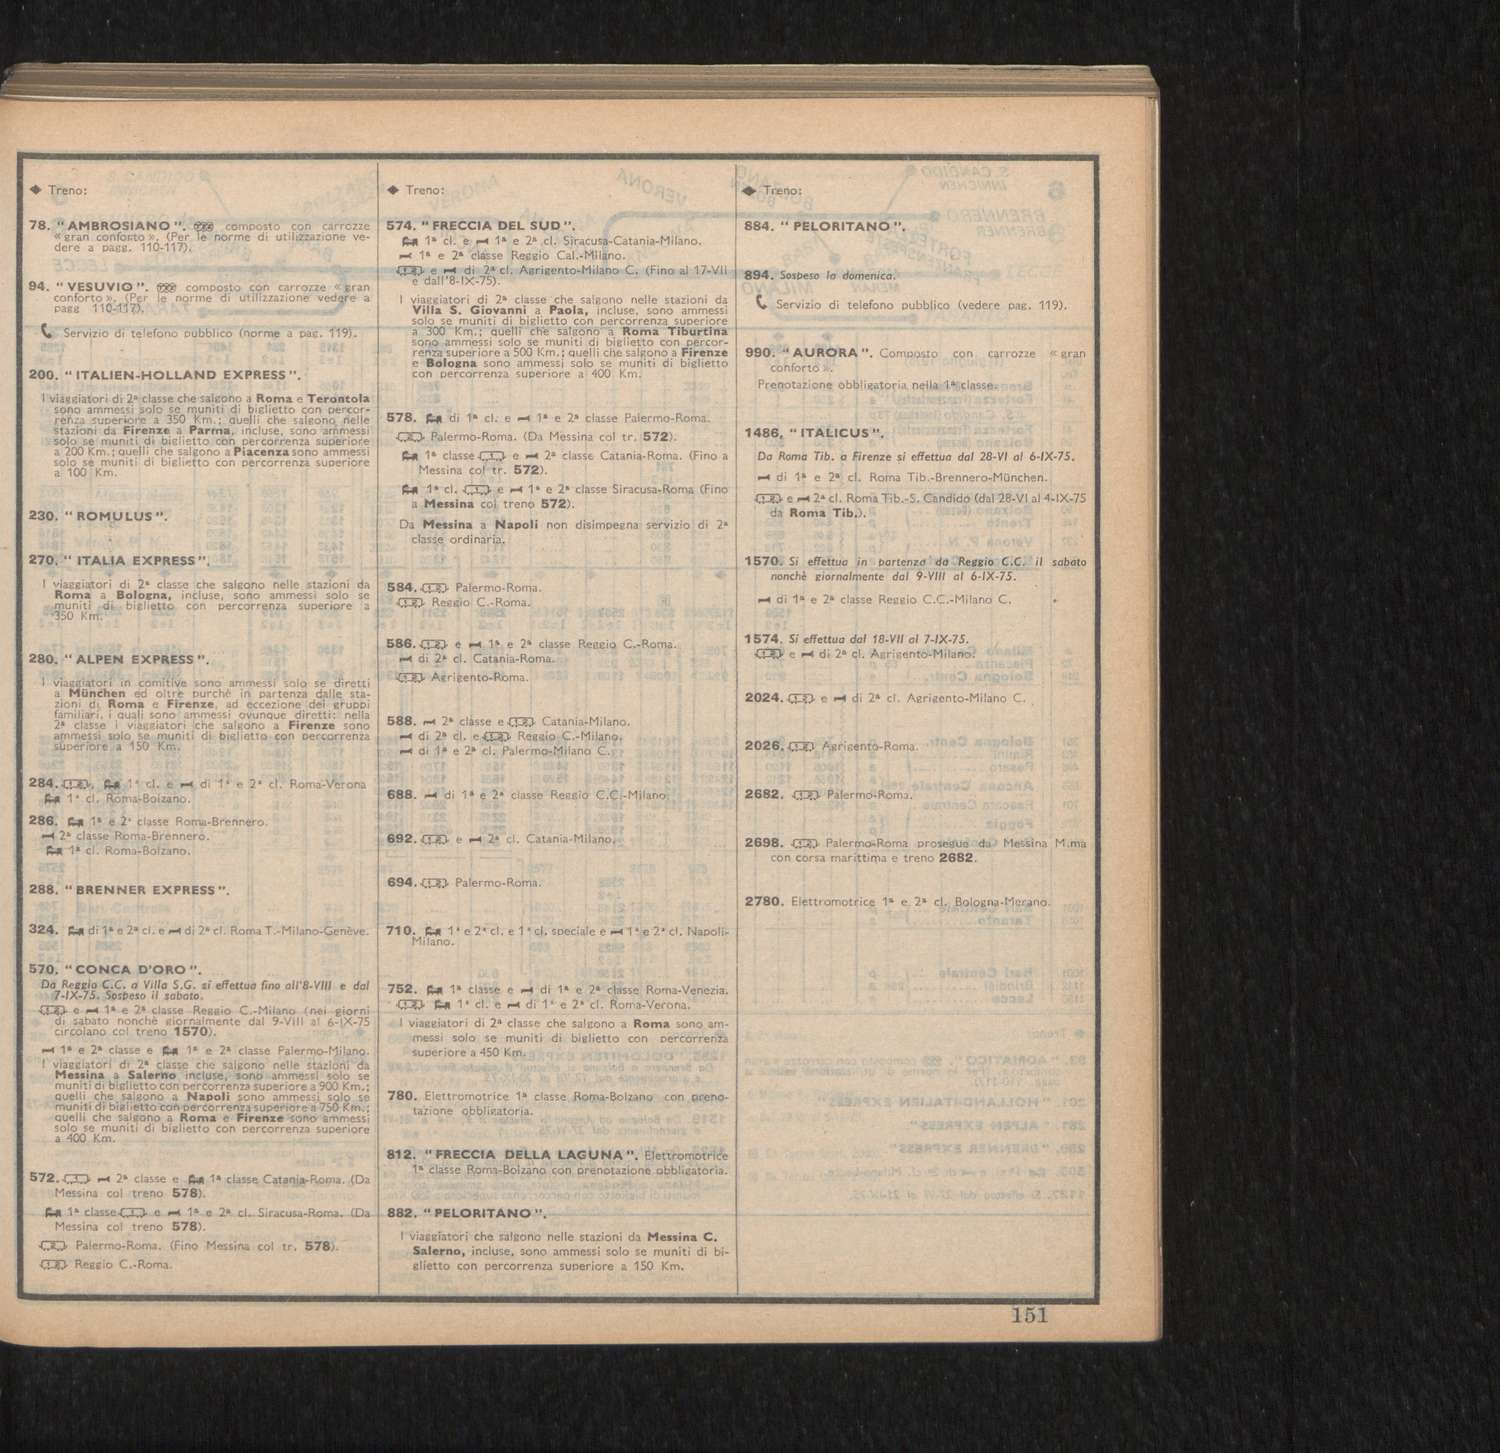 ◆ Treno:
78. “AMBROSIANO”. composto con carrozze
«gran conforto». (Per le norme di utilizzazione ve-
dere a pagg. 110-117).
94. “VESUVIO”. composto con carrozze «gran
conforto». (Per le norme di utilizzazione vedere a
pagg 110-117).
Servizio di telefono pubblico (norme a pag. 119).
200. “ITALIEN-HOLLAND EXPRESS”.
I viaggiatori di 2ª classe che salgono a Roma e Terontola
sono ammessi solo se muniti di biglietto con percor-
renza superiore a 350 Km.; quelli che salgono nelle
stazioni da Firenze a Parma, incluse, sono ammessi
solo se muniti di biglietto con percorrenza superiore
a 200 Km.; quelli che salgono a Piacenza sono ammessi
solo se muniti di biglietto con percorrenza superiore
a 100 Km.
230. “ROMULUS”.
270. “ITALIA EXPRESS”.
I viaggiatori di 2ª classe che salgono nelle stazioni da
Roma a Bologna, incluse, sono ammessi solo se
muniti di biglietto con percorrenza superiore a
350 Km.
280. “ALPEN EXPRESS”.
I viaggiatori in comitive sono ammessi solo se diretti
a München ed oltre purchè in partenza dalle sta-
zioni di Roma e Firenze, ad eccezione dei gruppi
familiari, i quali sono ammessi ovunque diretti: nella
2ª classe i viaggiatori che salgono a Firenze sono
ammessi solo se muniti di biglietto con percorrenza
superiore a 150 Km.
284. 1-2, 1ª cl. e di 1ª e 2ª cl. Roma-Verona
1ª cl. Roma-Bolzano.
286. 1ª e 2ª classe Roma-Brennero.
2ª classe Roma-Brennero.
1ª cl. Roma-Bolzano.
288. “BRENNER EXPRESS”.
324. di 1ª e 2ª cl. e di 2ª cl. Roma T.-Milano-Genève.
570. “CONCA D'ORO”.
Da Reggio C.C. a Villa S.G. si effettua fino all'8-VIII e dal
7-IX-75. Sospeso il sabato.
1-2 e 1ª e 2ª classe Reggio C.-Milano (nei giorni
di sabato nonchè giornalmente dal 9-VIII al 6-IX-75
circolano col treno 1570).
1ª e 2ª classe e 1ª e 2ª classe Palermo-Milano.
I viaggiatori di 2ª classe che salgono nelle stazioni da
Messina a Salerno incluse, sono ammessi solo se
muniti di biglietto con percorrenza superiore a 900 Km.;
quelli che salgono a Napoli sono ammessi solo se
muniti di biglietto con percorrenza superiore a 750 Km.;
quelli che salgono a Roma e Firenze sono ammessi
solo se muniti di biglietto con percorrenza superiore
a 400 Km.
572. 2ª classe e 1ª classe Catania-Roma. (Da
Messina col treno 578).
1ª classe e 1ª e 2ª cl. Siracusa-Roma. (Da
Messina col treno 578).
Palermo-Roma. (Fino Messina col tr. 578).
1-2 Reggio C.-Roma.
◆ Treno:
574. “FRECCIA DEL SUD”.
1ª cl. e 1ª e 2ª cl. Siracusa-Catania-Milano.
1ª e 2ª classe Reggio Cal.-Milano.
1-2 e di 2ª cl. Agrigento-Milano C. (Fino al 17-VII
e dall'8-IX-75).
I viaggiatori di 2ª classe che salgono nelle stazioni da
Villa S. Giovanni a Paola, incluse, sono ammessi
solo se muniti di biglietto con percorrenza superiore
a 300 Km.; quelli che salgono a Roma Tiburtina
sono ammessi solo se muniti di biglietto con percor-
renza superiore a 500 Km.; quelli che salgono a Firenze
e Bologna sono ammessi solo se muniti di biglietto
con percorrenza superiore a 400 Km.
578. di 1ª cl. e 1ª e 2ª classe Palermo-Roma.
Palermo-Roma. (Da Messina col tr. 572).
1ª classe e 2ª classe Catania-Roma. (Fino a
Messina col tr. 572).
1ª cl. e 1ª e 2ª classe Siracusa-Roma (Fino
a Messina col treno 572).
Da Messina a Napoli non disimpegna servizio di 2ª
classe ordinaria.
584. 1-2 Palermo-Roma.
1-2 Reggio C.-Roma.
586. 1-2 e 1ª e 2ª classe Reggio C.-Roma.
di 2ª cl. Catania-Roma.
1-2 Agrigento-Roma.
588. 2ª classe e 1-2 Catania-Milano.
di 2ª cl. e 1-2 Reggio C.-Milano.
di 1ª e 2ª cl. Palermo-Milano C.
688. di 1ª e 2ª classe Reggio C.C.-Milano.
692. 1-2 e 2ª cl. Catania-Milano.
694. 1-2 Palermo-Roma.
710. 1ª e 2ª cl. e 1ª cl. speciale e 1ª e 2ª cl. Napoli-
Milano.
752. 1ª classe e di 1ª e 2ª classe Roma-Venezia.
1-2 1ª cl. e di 1ª e 2ª cl. Roma-Verona.
I viaggiatori di 2ª classe che salgono a Roma sono am-
messi solo se muniti di biglietto con percorrenza
superiore a 450 Km.
780. Elettromotrice 1ª classe Roma-Bolzano con preno-
tazione obbligatoria.
812. “FRECCIA DELLA LAGUNA”. Elettromotrice
1ª classe Roma-Bolzano con prenotazione obbligatoria.
882. “PELORITANO”.
I viaggiatori che salgono nelle stazioni da Messina C.
Salerno, incluse, sono ammessi solo se muniti di bi-
glietto con percorrenza superiore a 150 Km.
◆ Treno:
884. “PELORITANO”.
894. Sospeso la domenica.
Servizio di telefono pubblico (vedere pag. 119).
990. “AURORA”. Composto con carrozze «gran
conforto».
Prenotazione obbligatoria nella 1ª classe.
1486. “ITALICUS”.
Da Roma Tib. a Firenze si effettua dal 28-VI al 6-IX-75.
di 1ª e 2ª cl. Roma Tib.-Brennero-München.
1-2 e 2ª cl. Roma Tib.-S. Candido (dal 28-VI al 4-IX-75
da Roma Tib.).
1570. Si effettua in partenza da Reggio C.C. il sabato
nonchè giornalmente dal 9-VIII al 6-IX-75.
di 1ª e 2ª classe Reggio C.C.-Milano C.
1574. Si effettua dal 18-VII al 7-IX-75.
1-2 e di 2ª cl. Agrigento-Milano.
2024. 1-2 e di 2ª cl. Agrigento-Milano C.
2026. 1-2 Agrigento-Roma.
2682. 1-2 Palermo-Roma.
2698. 1-2 Palermo-Roma prosegue da Messina M.ma
con corsa marittima e treno 2682.
2780. Elettromotrice 1ª e 2ª cl. Bologna-Merano.
151